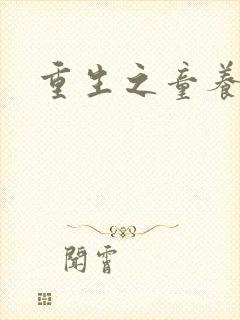 重生之童養
閒霄